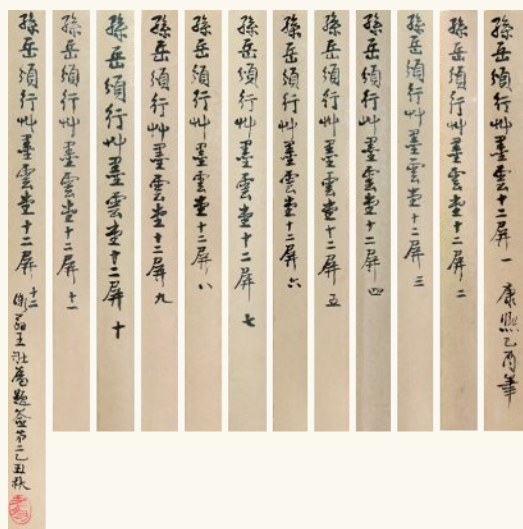 孫岳頒行艸墨雲堂十二屏一 康熙乙酉年
孫岳頒行艸墨雲堂十二屏二
孫岳頒行艸墨雲堂十二屏三
孫岳頒行艸墨雲堂十二屏四
孫岳頒行艸墨雲堂十二屏五
孫岳頒行艸墨雲堂十二屏六
孫岳頒行艸墨雲堂十二屏七
孫岳頒行艸墨雲堂十二屏八
孫岳頒行艸墨雲堂十二屏九
孫岳頒行艸墨雲堂十二屏十
孫岳頒行艸墨雲堂十二屏十一
孫岳頒行艸墨雲堂十二屏十二
漸翁王壯為題簽第二乙丑秋